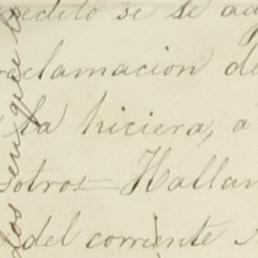 redito se le ad
roclamacion de
la hiciera, a
sotros Hallan
del corriente